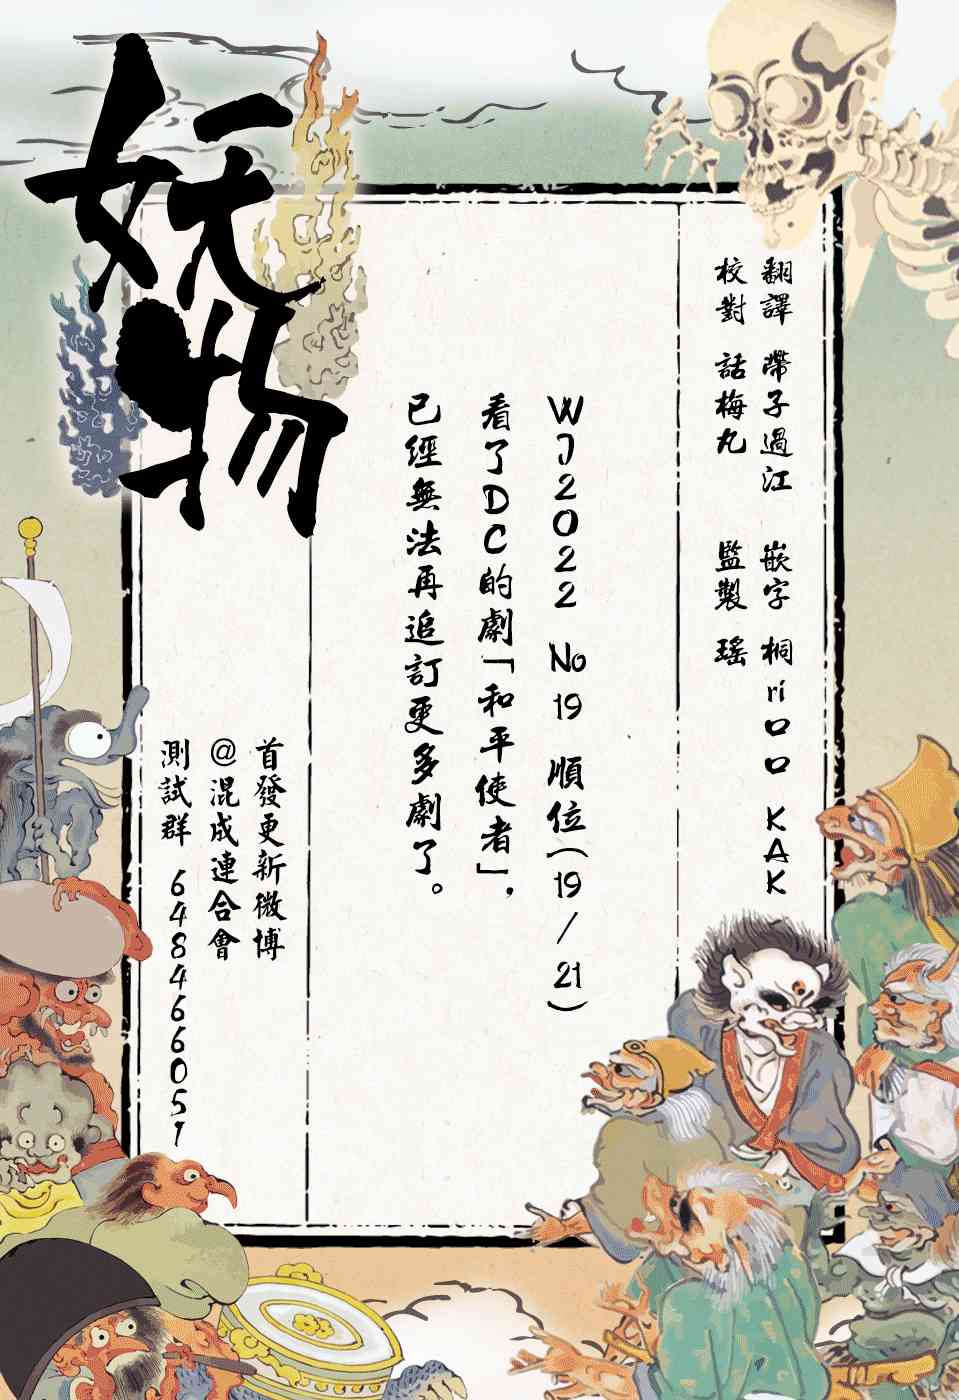 妖物
翻譯 帶子過江 嵌字 桐ri口口 KAK
校對 話梅丸 監製 瑤
WJ2022 No19 順位(19/21)
看了DC的劇「和平使者」，
已經無法再追訂更多劇了。
首發更新微博
@混成連合會
測試群 648466051